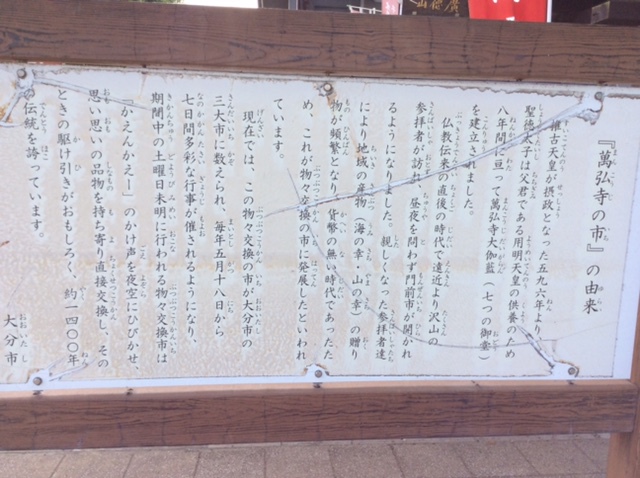 『萬弘寺の市』の由来
推古天皇が摂政となった五九六年より
聖徳太子は父君である用明天皇の供養のため
八年間に亘って萬弘寺大伽藍(七つの御堂)
を建立されました。
仏教伝来の直後の時代で遠近より、沢山の
参拝者が訪れ、昼夜を問わず門前市が開かれ
るようになりました。親しくなった参拝者達
により地域の産物(海の幸・山の幸)の贈り
物が頻繁となり、貨幣の無い時代であったた
め、これが物々交換の市に発展したといわれ
ています。
現在では、この物々交換の市が大分市の
三大市に数えられ、毎年五月十八日から
七日間多彩な行事が催されるようになり、
期間中の土曜日未明に行われる物々交換市は
「かえんかえー」のかけ声を夜空にひびかせ、
思い思いの品物を持ち寄り直接交換し、その
ときの駆け引きがおもしろく、約一四〇〇年
の伝統を誇っています。
大分市